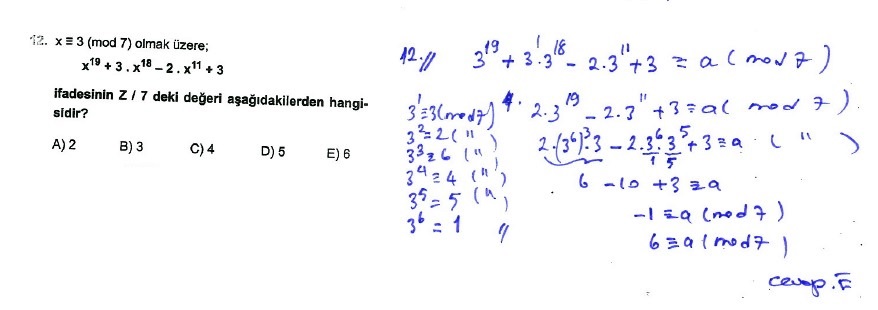 12. x ≡ 3 (mod 7) olmak üzere;
x¹⁹ + 3 . x¹⁸ – 2 . x¹¹ + 3
ifadesinin Z / 7 deki değeri aşağıdakilerden hangi-
sidir?
A) 2 B) 3 C) 4 D) 5 E) 6
12.// 3¹⁹ + 3¹.3¹⁸ - 2.3¹¹ + 3 ≡ a (mod 7)
3¹ ≡ 3 (mod 7)
3² ≡ 2 ( " )
3³ ≡ 6 ( " )
3⁴ ≡ 4 ( " )
3⁵ = 5 ( " )
3⁶ = 1 "
2.3¹⁹ - 2.3¹¹ + 3 ≡ a ( mod 7 )
2.(3⁶)³.3 - 2.3⁶.3⁵ + 3 ≡ a ( " )
1 5
6 - 10 + 3 ≡ a
-1 ≡ a (mod 7)
6 ≡ a (mod 7)
cevap. E